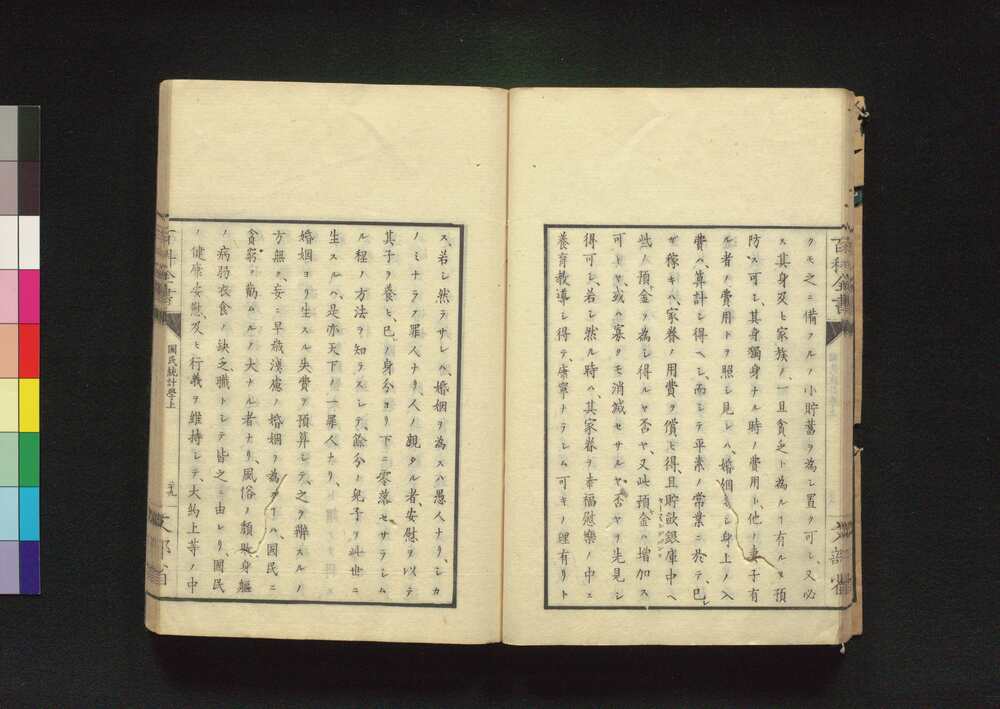 百科全書
文部省
クモ之ニ備フルノ小貯蓄ヲ為シ置ク可シ、又必
ス其身及ヒ家族ノ、一旦貧乏ト為ルヿ有ルヲ預
防ス可シ、其身獨身ナル時ノ費用ト、他ノ妻子有
ル者ノ費用トヲ照シ見レハ、婚姻シ身上ノ入
費ハ、算計シ得ヘシ、而シテ平素ノ常業ニ於テ、已
レカ稼キハ、家眷ノ用費ヲ償ヒ得、且貯蓄銀庫中ヘ
些ノ預金ヲ為シ得ルヤ否ヤ、又此預金ハ増加ス
可キヤ、或ハ寡クモ消減セサルヤ否ヤヲ先見シ
得可シ、若シ然ル時ハ、其家眷ヲ幸福慰樂ノ中ニ
養育教導シ得テ、康寧ナラシム可キノ理有リト
ス、若シ然ラサレハ、婚姻ヲ為スハ愚人ナリ、シカ
ノミナラス罪人ナリ、人ノ親タル者、安慰ヲ以テ
其子ヲ養ヒ、已ノ身分ヨリ下ニ零落セサラシム
ル程ノ方法ヲ知ラスシテ、餘分ノ兒子ヲ此世ニ
生スルハ、是亦天下ノ一罪人ナリ、
婚姻ヨリ生スル失費ヲ預算シテ、之ヲ辦スルノ
方無ク、妄ニ早歳淺慮ノ婚姻ヲ為スヿハ、國民ニ
貧窮ヲ勸ムルノ大ナル者ナリ、風俗ノ頽敗身軀
ノ病弱衣食ノ缺乏、職トシテ皆之ニ由レリ、國民
ノ健康安慰、及ヒ行義ヲ維持シテ、大約上等ノ中
百科全書
國民統計學上
二十九
文部省